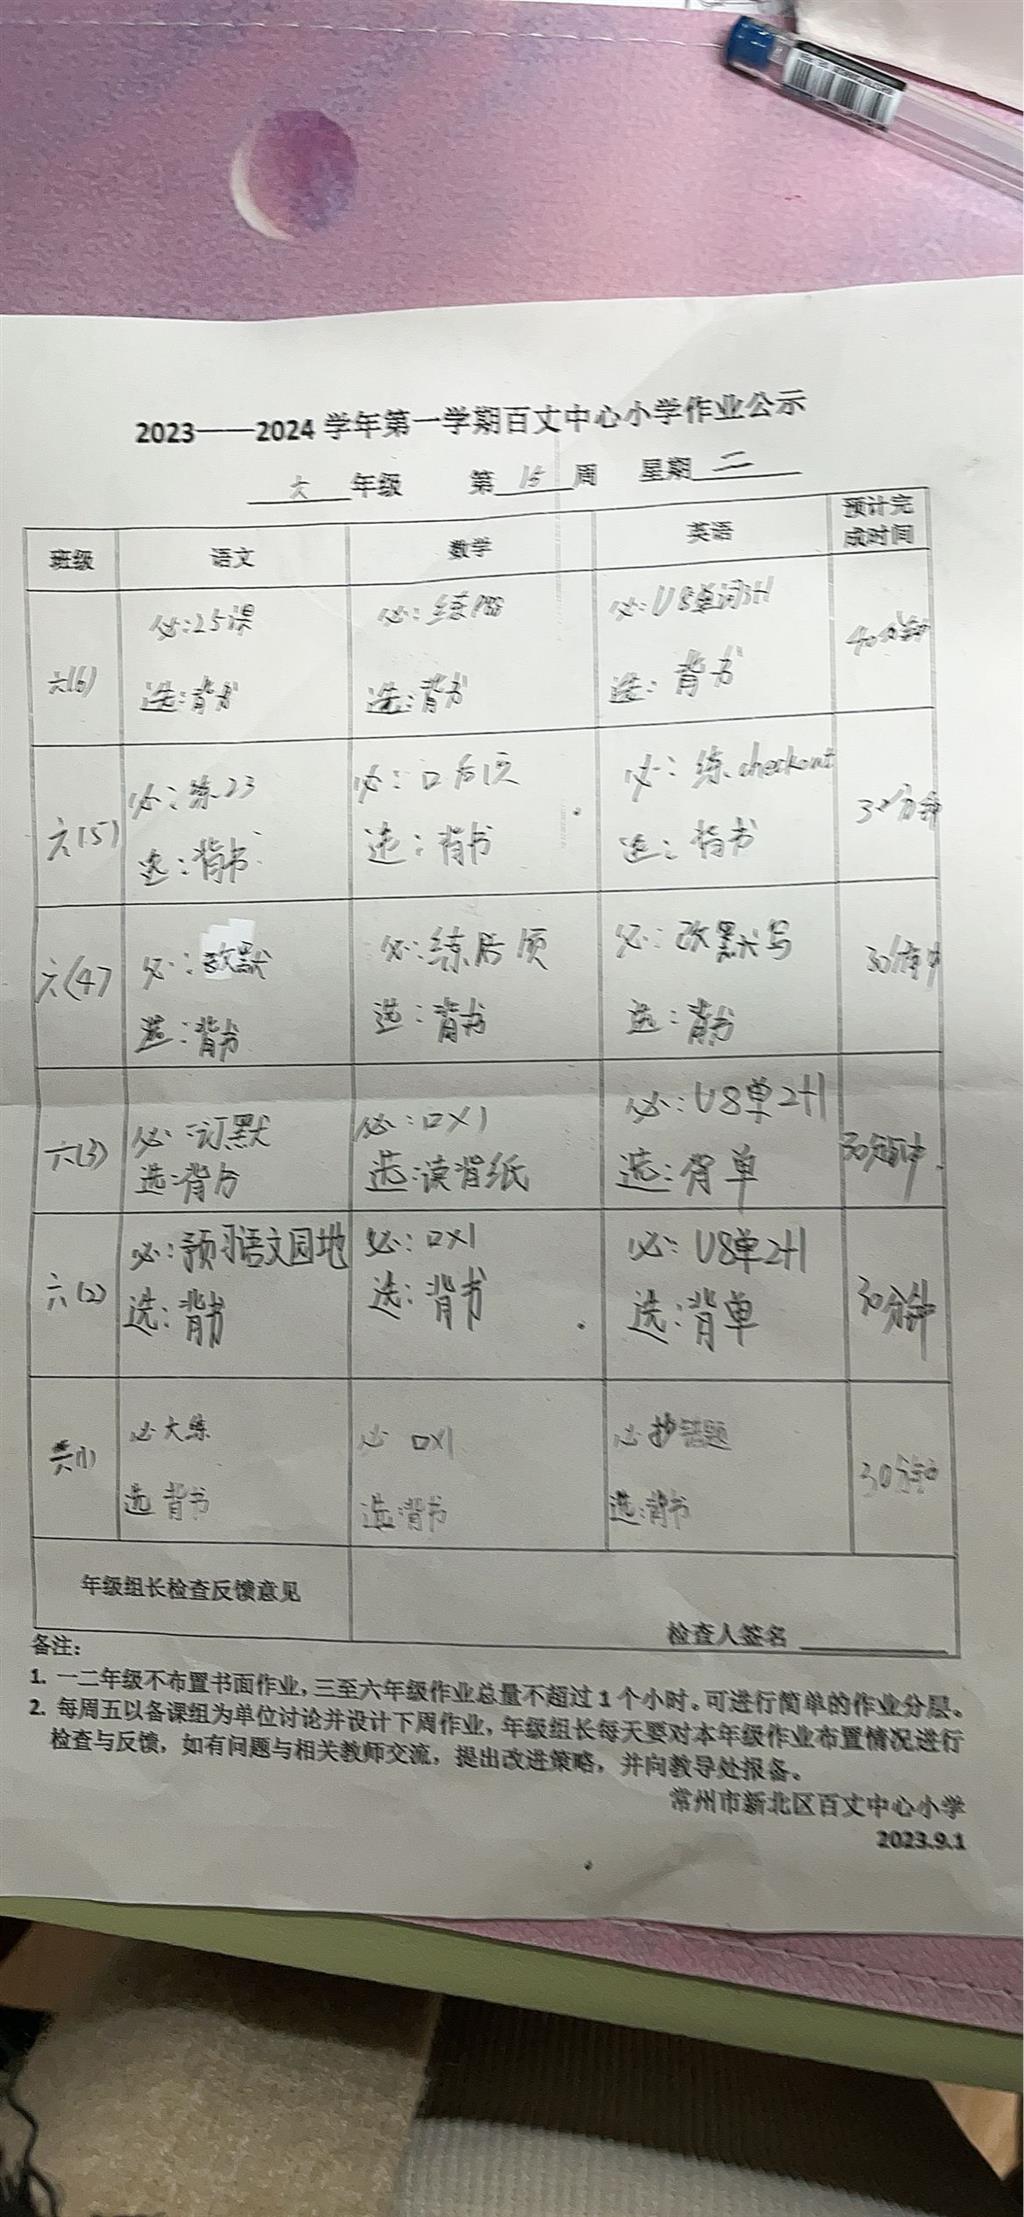 2023——2024 学年第一学期百丈中心小学作业公示
六 年级 第 15 周 星期 二
班级 语文 数学 英语 预计完成时间
六(6) 必:25课 必:练 必:U8单词3+1 40分钟
选:背书 选:背书 选:背书
六(5) 必:练23 必:口后1页 必:练checkout 30分钟
选:背书 选:背书 选:背书
六(4) 必:改默 必:练后页 必:改默写 30分钟
选:背书 选:背书 选:背书
六(3) 必:订默 必:口×1 必:U8单2+1 30分钟
选:背书 选:读背纸 选:背单
六(2) 必:预习语文园地 必:口×1 必:U8单2+1 30分钟
选:背书 选:背书 选:背单
六(1) 必 大练 必 口×1 必 抄错题 30分钟
选 背书 选:背书 选:背书
年级组长检查反馈意见
检查人签名
备注:
1. 一二年级不布置书面作业,三至六年级作业总量不超过 1 个小时。可进行简单的作业分层。
2. 每周五以备课组为单位讨论并设计下周作业,年级组长每天要对本年级作业布置情况进行
检查与反馈,如有问题与相关教师交流,提出改进策略,并向教导处报备。
常州市新北区百丈中心小学
2023.9.1